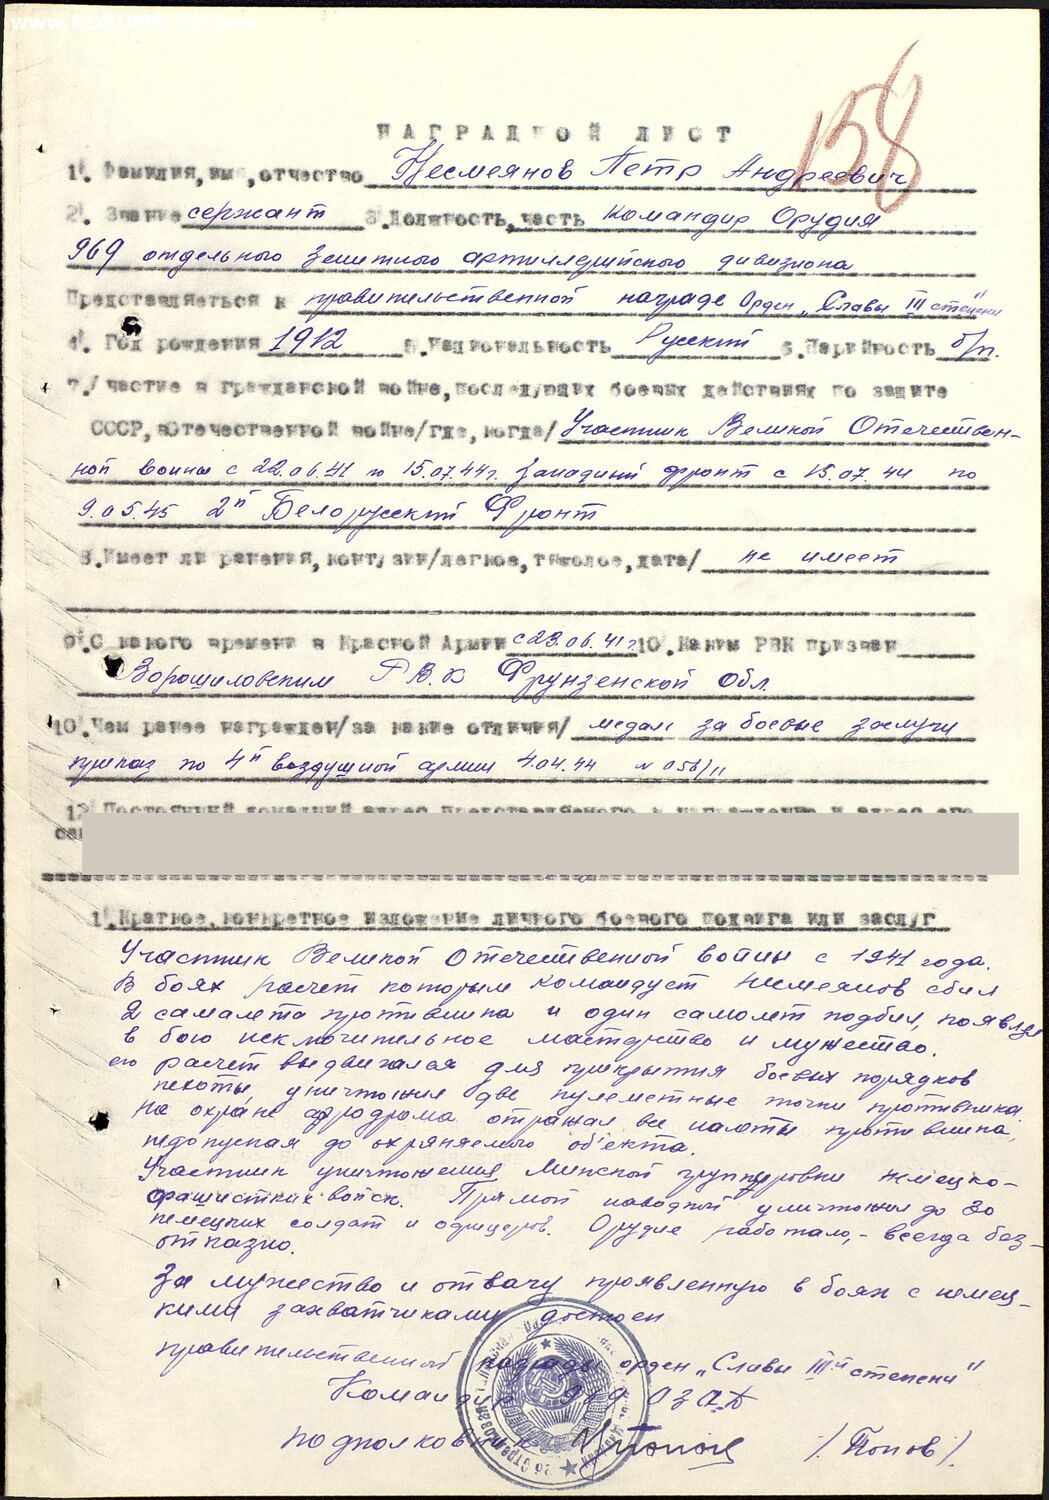 www.FORUMS-SU.com
158
НАГРАДНОЙ ЛИСТ
1. Фамилия, имя, отчество Несмеянов Петр Андреевич
2. Звание сержант 3. Должность, часть Командир Орудия
969 отдельного Зенитного артиллерийского дивизиона
Представляеться к правительственной награде Орден "Славы III степени"
4. Год рождения 1912 5. Национальность Русский 6. Парийность б/п.
7. Участие в гражданской войне, последующих боевых действиях по защите
СССР, в Отечественной войне/где, когда/ Участник Великой Отечествен-
ной войны с 22.06.41 по 15.07.44г. Западный фронт с 15.07.44 по
9.05.45 2й Белорусский Фронт
8. Имеет ли ранения, контузии/легкое, тяжолое, дата/ не имеет
9. С какого времени в Красной Армии с 23.06.41г 10. Каким РВК призван
Ворошиловским Р.В.К Фрунзенской Обл.
10. Чем ранее награжден/за какие отличия/ медаль за боевые заслуги
приказ по 4й воздушной армии 4.04.44 N 056/11
12. Постоянный домашний адрес представляемого к награждению и адрес его
1. Краткое, конкретное изложение личного боевого подвига или заслуг
Участник Великой Отечественной войны с 1941 года.
В боях расчет которым командует Немеянов сбил
2 самалета противника и один самолет подбил, появляя
в бою исключительное мастерство и мужество.
его расчет выдвигался для прикрытия боевых порядков
пехоты, уничтожил две пулеметные точки противника
на охране аэродрома отражал все налеты противника,
недопуская до охряняемого об'екта.
Участник уничтожения Минской группировки немецко-
фашистких войск. Прямой наводкой уничтожил до 30
немецких солдат и офицеров. Орудие работало, - всегда без-
отказно.
За мужество и отвагу проявленную в боях с немец-
кими захватчиками достоен
правительственной награды орден "Славы IIIй степени"
Командир 969 ОЗАД
подполковник /Попов/.